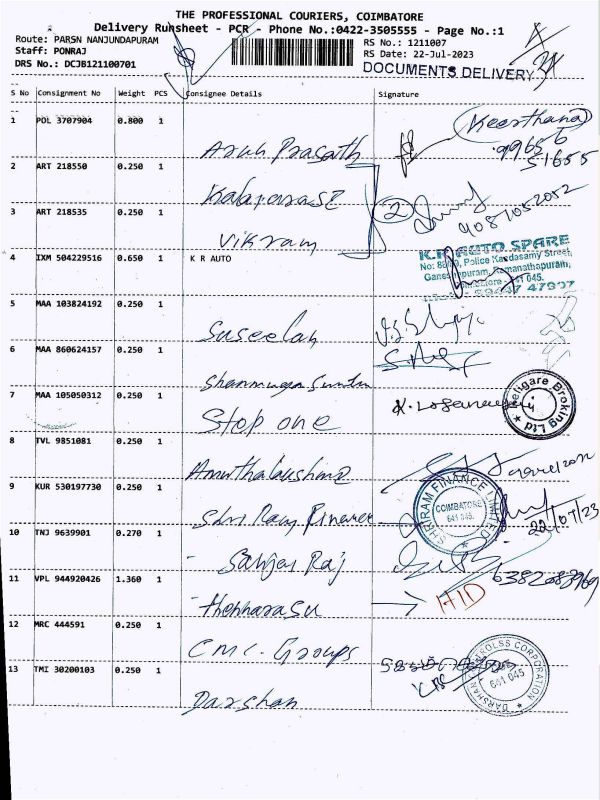 THE PROFESSIONAL COURIERS, COIMBATORE
Delivery Runsheet - PCR - Phone No.:0422-3505555 - Page No.:1
Route: PARSN NANJUNDAPURAM
RS No.: 1211007
Staff: PONRAJ
RS Date: 22-Jul-2023
DRS No.: DCJB121100701
DOCUMENTS DELIVERY
S No Consignment No Weight PCS Consignee Details Signature
1 POL 3707904 0.800 1
Arun Prasath
(Keerthana)
99656
51655
2 ART 218550 0.250 1
Kalaiarasi
3 ART 218535 0.250 1
Vikram
2
9087052052
4 IXM 504229516 0.650 1 K R AUTO
K.R AUTO SPARE
Police Kandasamy Street,
Ramanathapuram,
5 MAA 103824192 0.250 1
Suseelan
6 MAA 860624157 0.250 1
Shanmuga
7 MAA 105050312 0.250 1
Stop one
Religare Broking Ltd
8 TVL 9851081 0.250 1
Amuthalakshmi
9 KUR 530197730 0.250 1
Shri Ram Finance
SHRIRAM FINANCE LIMITED
COIMBATORE
641 045.
22/07/23
10 TNJ 9639901 0.270 1
Sanjai Raj
6382083969
11 VPL 944920426 1.360 1
Thennarasu
HID
12 MRC 444591 0.250 1
CMC. Groups
13 TMI 30200103 0.250 1
Darshan
641 045
DARSHAN
CORPORATION